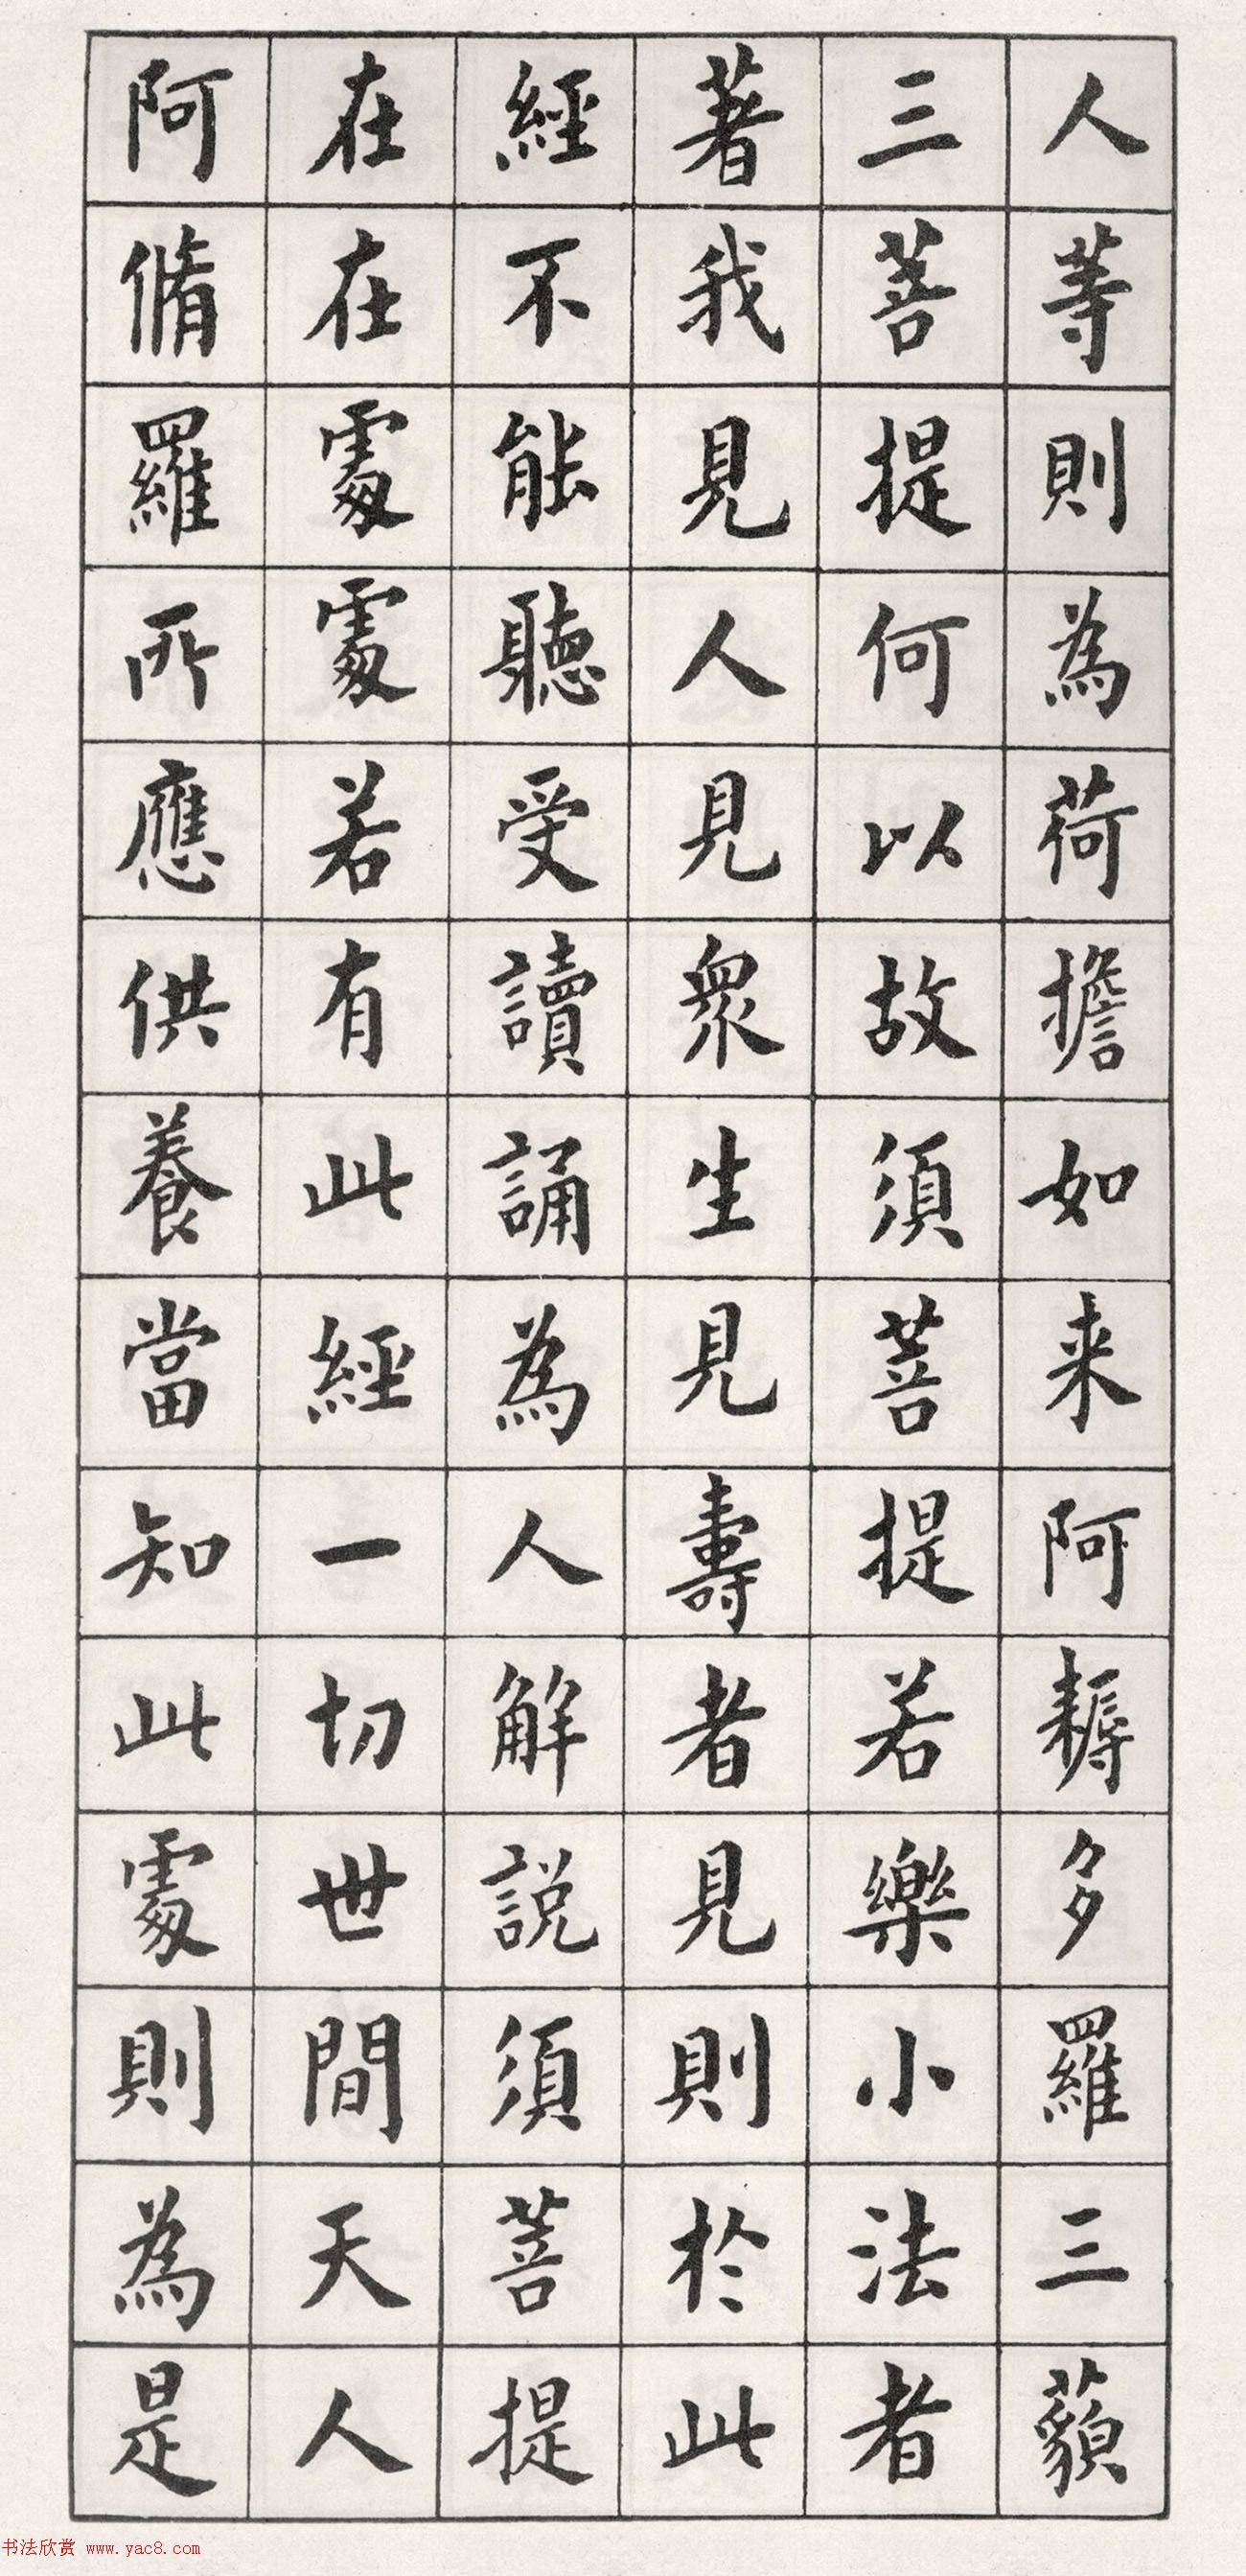 人等則為荷擔如来阿耨多羅三藐
三菩提何以故須菩提若樂小法者
著我見人見眾生見壽者見則於此
經不能聽受讀誦為人解説須菩提
在在處處若有此經一切世間天人
阿脩羅所應供養當知此處則為是
书法欣赏 www.yac8.com